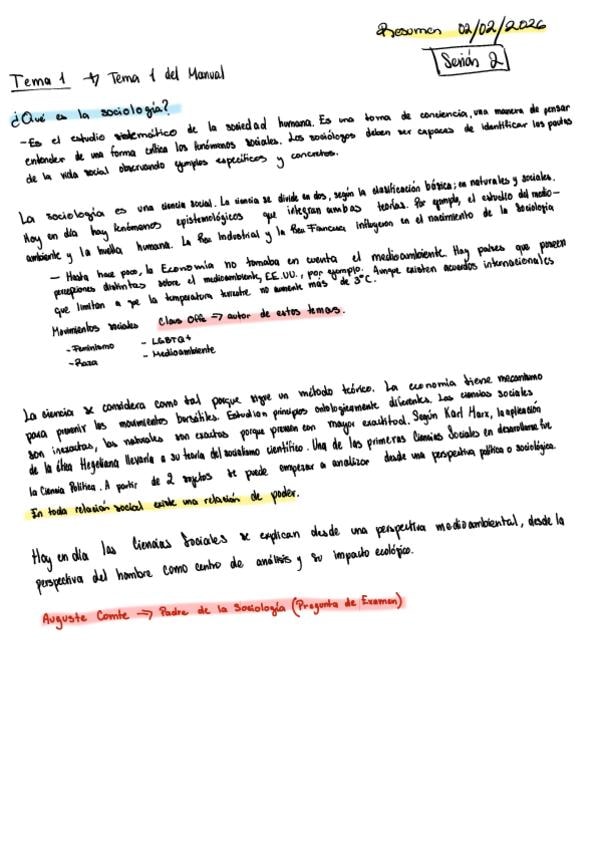 Resumen 02/02/2026
Sesión 2
Tema 1 → Tema 1 del Manual
¿Qué es la sociología?
- Es el estudio sistemático de la sociedad humana. Es una toma de conciencia, una manera de pensar
entender de una forma crítica los fenómenos sociales. Los sociólogos deben ser capaces de identificar las pautas
de la vida social observando ejemplos específicos y concretos.
La sociología es una ciencia social. La ciencia se divide en dos, según la clasificación básica; en naturales y sociales.
Hoy en día hay fenómenos epistemológicos que integran ambas teorías. Por ejemplo, el estudio del medio-
ambiente y la huella humana. La Rev Industrial y la Rev Francesa influyeron en el nacimiento de la Sociología
- Hasta hace poco, la Economía no tomaba en cuenta el medioambiente. Hay países que poseen
percepciones distintas sobre el medioambiente, EE.UU., por ejemplo. Aunque existen acuerdos internacionales
que limitan a que la temperatura terrestre no aumente más de 3°C.
Movimientos sociales Claus Offe → autor de estos temas.
- Feminismo - LGBTQ+
- Raza - Medioambiente
La ciencia se considera como tal porque sigue un método teórico. La economía tiene mecanismo
para prevenir los movimientos bursátiles. Estudian principios ontológicamente diferentes. Las ciencias sociales
son inexactas, las naturales son exactas porque prevén con mayor exactitud. Según Karl Marx, la aplicación
de la ética Hegeliana llevaría a su teoría del socialismo científico. Una de las primeras Ciencias Sociales en desarrollarse fue
la Ciencia Política. A partir de 2 sujetos se puede empezar a analizar desde una perspectiva política o sociológica.
En toda relación social existe una relación de poder.
Hoy en día las Ciencias Sociales se explican desde una perspectiva medioambiental, desde la
perspectiva del hombre como centro de análisis y su impacto ecológico.
Auguste Comte → Padre de la Sociología (Pregunta de Examen)